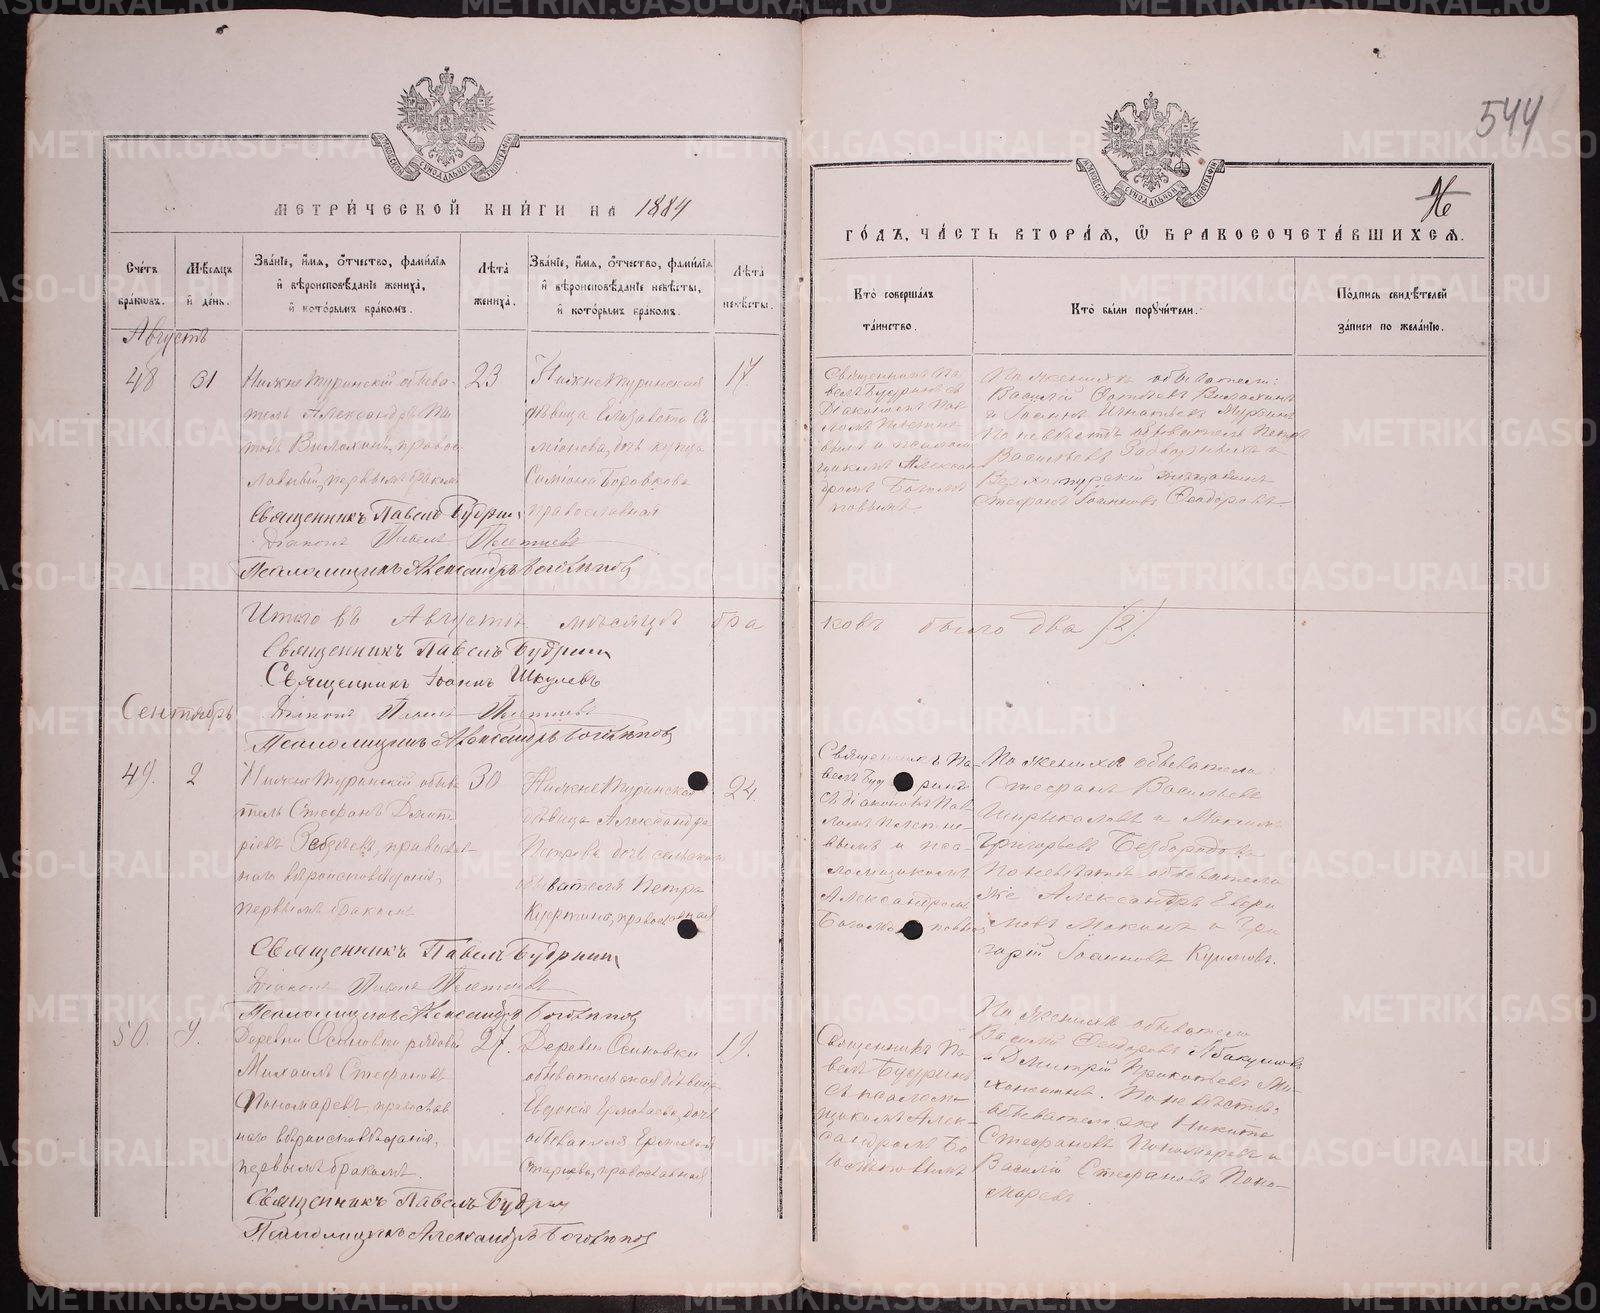 544
МЕТРИ́ЧЕСКОЙ КНИ́ГИ НА 1884
Сче́тъ бра́ковъ.
Мѣ́сяцъ и҆ де́нь.
Зва́нїе, и҆́мя, ѻ҆́тчество, фами́лїя и҆ вѣроисповѣ́данїе жениха̀, и҆ кото́рымъ бра́комъ.
Лѣта̀ жениха̀.
Зва́нїе, и҆́мя, ѻ҆́тчество, фами́лїя и҆ вѣроисповѣ́данїе невѣ́сты, и҆ кото́рымъ бра́комъ.
Лѣта̀ невѣ́сты.
Августъ
48
31
Нижнетуринскій обыва-
тель Александръ
православный, первымъ бракомъ
23
Нижнетуринская
дѣвица Елизавета Си-
міонова, дочь купца
Симіона Боровкова
православная
17.
Священникъ Павелъ Будринъ
Діаконъ Павелъ Плетневъ
Псаломщикъ Александръ Боголѣповъ
Итого въ Августѣ мѣсяцѣ бра
Священникъ Павелъ Будринъ
Священникъ Іоаннъ Шкулевъ
Сентябрь
Діаконъ Павелъ Плетневъ
Псаломщикъ Александръ Боголѣповъ
49.
2
Нижнетуринскій обыва
тель Стефанъ Димит
ріевъ православ-
наго вѣроисповѣданія,
первымъ бракомъ
30
Нижнетуринская
дѣвица Александра
Петрова, дочь сельскаго
обывателя Петра
православная
24.
Священникъ Павелъ Будринъ
Діаконъ Павелъ Плетневъ
Псаломщикъ Александръ Боголѣповъ
50.
9.
Деревни
Михаилъ Стефановъ
Пономаревъ, православ
наго вѣроисповѣданія,
первымъ бракомъ
27.
Деревни Осиновки
обывательская дѣвица
Евдокія Ермолаева, дочь
обывателя Ермолая
православная
19.
Священникъ Павелъ Будринъ
Псаломщикъ Александръ Боголѣповъ
ГО́ДЪ, ЧА́СТЬ ВТОРА́Я, Ѿ БРАКОСОЧЕТА́ВШИХСЯ.
Кто̀ соверша́лъ та́инство.
Кто̀ бы́ли порꙋчи́тели.
По́дпись свидѣ́телей за́писи по жела́нїю.
Священникъ Па-
велъ Будринъ съ
Діакономъ Пав-
ломъ Плетне-
вымъ и псалом-
щикомъ Алексан
дромъ Боголѣ
повымъ
По женихѣ обыватели:
Василій
и Іоаннъ Игнатьевъ Мурзинъ
По невѣстѣ обыватель Петръ
Васильевъ и
Верхотурскій мѣщанинъ
Стефанъ Іоанновъ Ѳеодоровъ
ковъ было два (2).
Священникъ Па-
велъ Будринъ
съ діакономъ Пав-
ломъ Плетне-
вымъ и пса-
ломщикомъ
Александромъ
Боголѣповымъ
По женихѣ обыватели
Стефанъ Васильевъ
Ширыкаловъ и Максимъ
Григорьевъ Безбородовъ
По невѣстѣ обыватели
же Александръ
Григорій Іоанновъ
Священникъ Па-
велъ Будринъ
съ псалом-
щикомъ Алек-
сандромъ Бо
голѣповымъ
По женихѣ обыватели
Василій Ѳеодоровъ Абакумовъ
и Димитрій
По невѣстѣ:
обыватели же Никита
Стефановъ Пономаревъ и
Василій Стефановъ Поно-
маревъ
METRIKI.GASO-URAL.RU